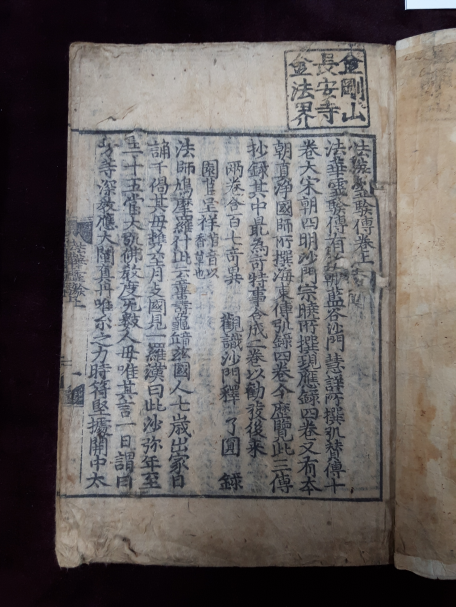 金剛山
長安寺
金法界
法華靈驗傳卷上
法華靈驗傳有藍谷沙門慧詳所撰弘贊傳十
卷大宋朝四明沙門宗曉所撰現應錄四卷又有本
朝眞淨國師所撰海東傳弘錄四卷今歷覽此三傳
抄錄其中最為奇特事合成二卷以勸發後來
兩卷合百七奇異 觀識沙門釋 了圓 錄
呈祥
法師鳩摩羅什此云童壽龜茲國人七歲出家日
誦千偈其母携至月支國見一羅漢曰此沙弥年至
三十五當大興佛教度無數人母唯其言一日謂曰
方等深教應大闡眞丹唯尒之力時符堅據關中大